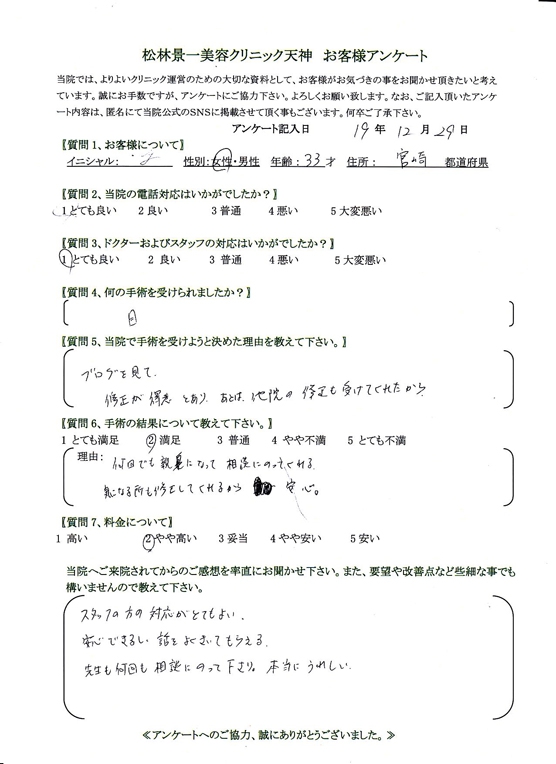 松林景一美容クリニック天神　お客様アンケート
当院では、よりよいクリニック運営のための大切な資料として、お客様がお気づきの事をお聞かせ頂きたいと考え
ています。誠にお手数ですが、アンケートにご協力下さい。よろしくお願い致します。なお、ご記入頂いたアンケ
ート内容は、匿名にて当院公式のSNSに掲載させて頂く事もございます。何卒ご了承下さい。
アンケート記入日　19 年 12 月 29 日
〖質問1、お客様について〗
イニシャル：　性別：女性・男性　年齢：33才　住所：　宮崎　都道府県
〖質問2、当院の電話対応はいかがでしたか？〗
1とても良い　2良い　3普通　4悪い　5大変悪い
〖質問3、ドクターおよびスタッフの対応はいかがでしたか？〗
1とても良い　2 良い　3 普通　4悪い　5大変悪い
〖質問4、何の手術を受けられましたか？〗
目
〖質問5、当院で手術を受けようと決めた理由を教えて下さい。〗
ブログを見て、
修正が得意 とあり、あとは、他院の 修正も受けてくれたから
〖質問6、手術の結果について教えて下さい。〗
1 とても満足　2 満足　3 普通　4 やや不満　5 とても不満
理由：
何回でも親身になって 相談にのってくれる。
気になる所も修正してくれるから 安心。
〖質問7、料金について〗
1 高い　2やや高い　3妥当　4やや安い　5安い
当院へご来院されてからのご感想を率直にお聞かせ下さい。また、要望や改善点など些細な事でも
構いませんので教えて下さい。
スタッフの方の対応がとてもよい。
安心できるし 話をよくきいてもらえる。
先生も何回も相談にのって下さり。本当にうれしい。
≪アンケートへのご協力、誠にありがとうございました。≫